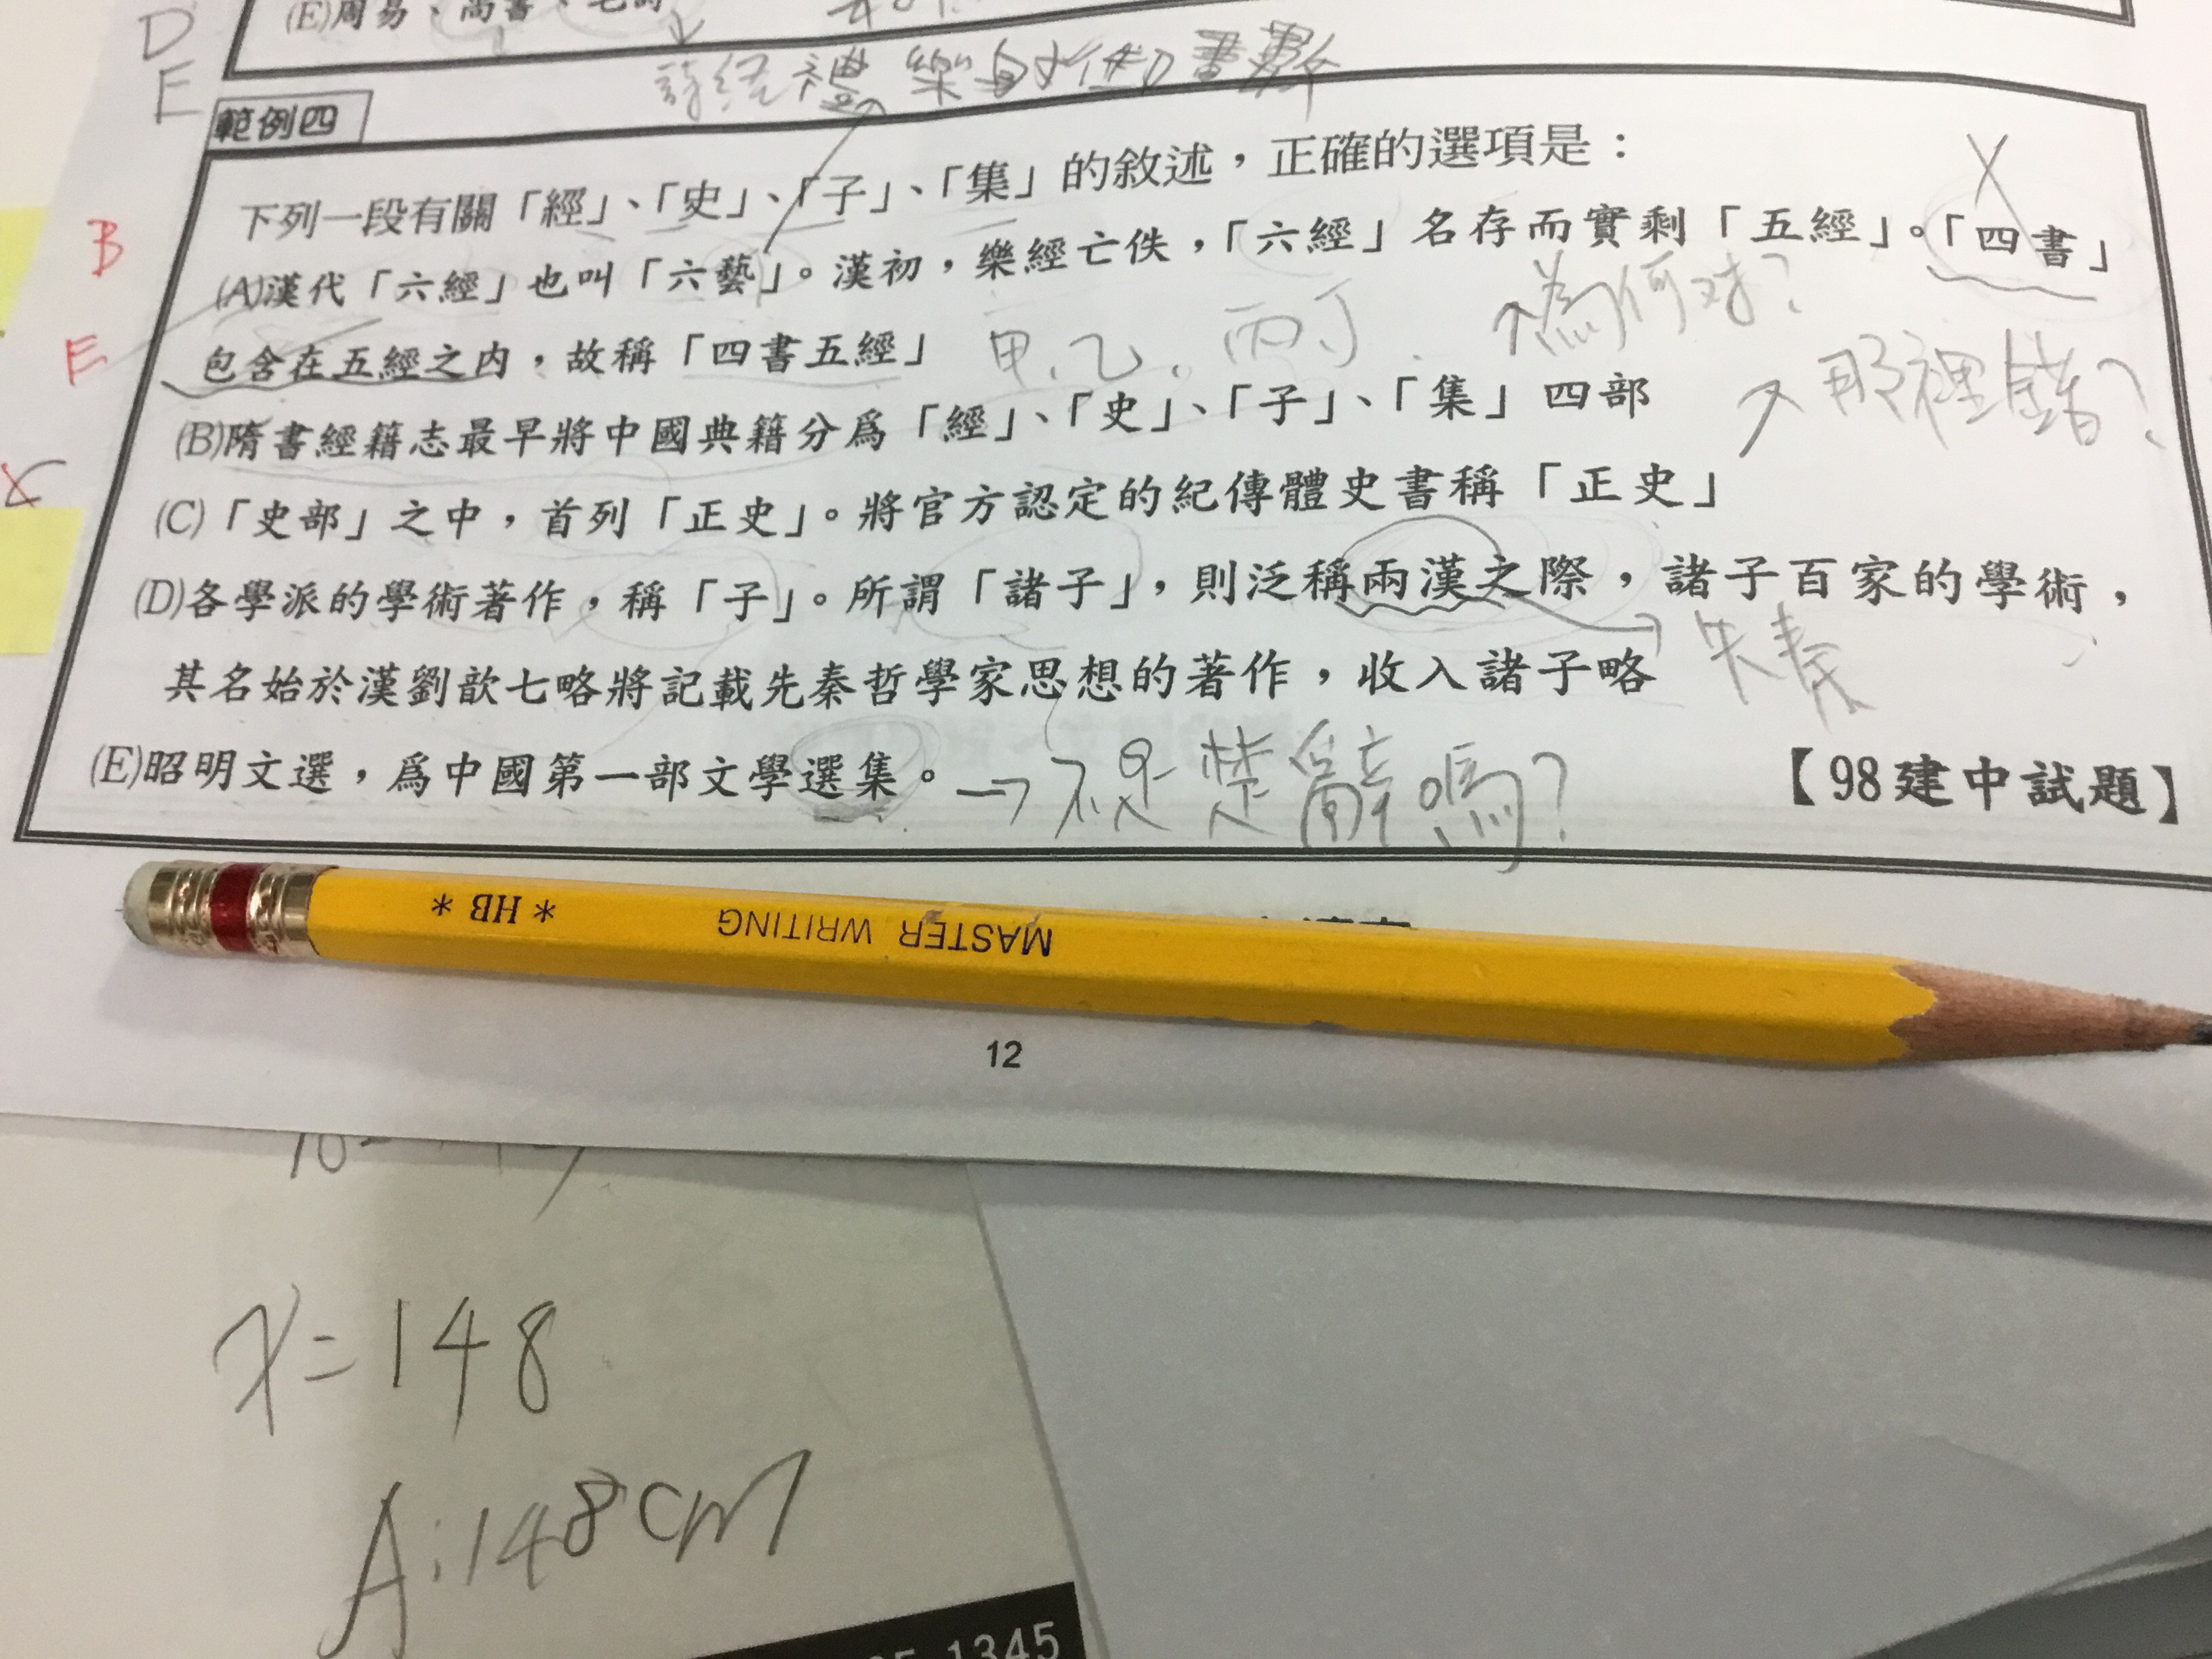 D
(E)周易、尚書、毛詩
E
詩經 禮 樂 射 御 書 數
範例四
下列一段有關「經」、「史」、「子」、「集」的敘述,正確的選項是:
X
B
(A)漢代「六經」也叫「六藝」。漢初,樂經亡佚,「六經」名存而實剩「五經」。「四書」
包含在五經之內,故稱「四書五經」
甲、乙、丙丁
為何对?
E
(B)隋書經籍志最早將中國典籍分爲「經」、「史」、「子」、「集」四部
那裡錯?
X
(C)「史部」之中,首列「正史」。將官方認定的紀傳體史書稱「正史」
(D)各學派的學術著作,稱「子」。所謂「諸子」,則泛稱兩漢之際,諸子百家的學術,
其名始於漢劉歆七略將記載先秦哲學家思想的著作,收入諸子略
先秦
(E)昭明文選,爲中國第一部文學選集。
不是楚辭嗎?
【98建中試題】
* HB * MASTER WRITING
12
x=148
A:148cm
1345